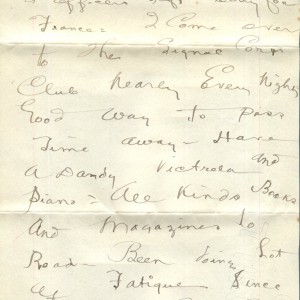 France. I Come over
to The Signal Corps
Club Nearly Every Night
Good way to pass
Time away - Have
A Dandy Victrola and
piano - All Kinds Books
And Magazines to
Read - Been doing lot
of Fatigue Since